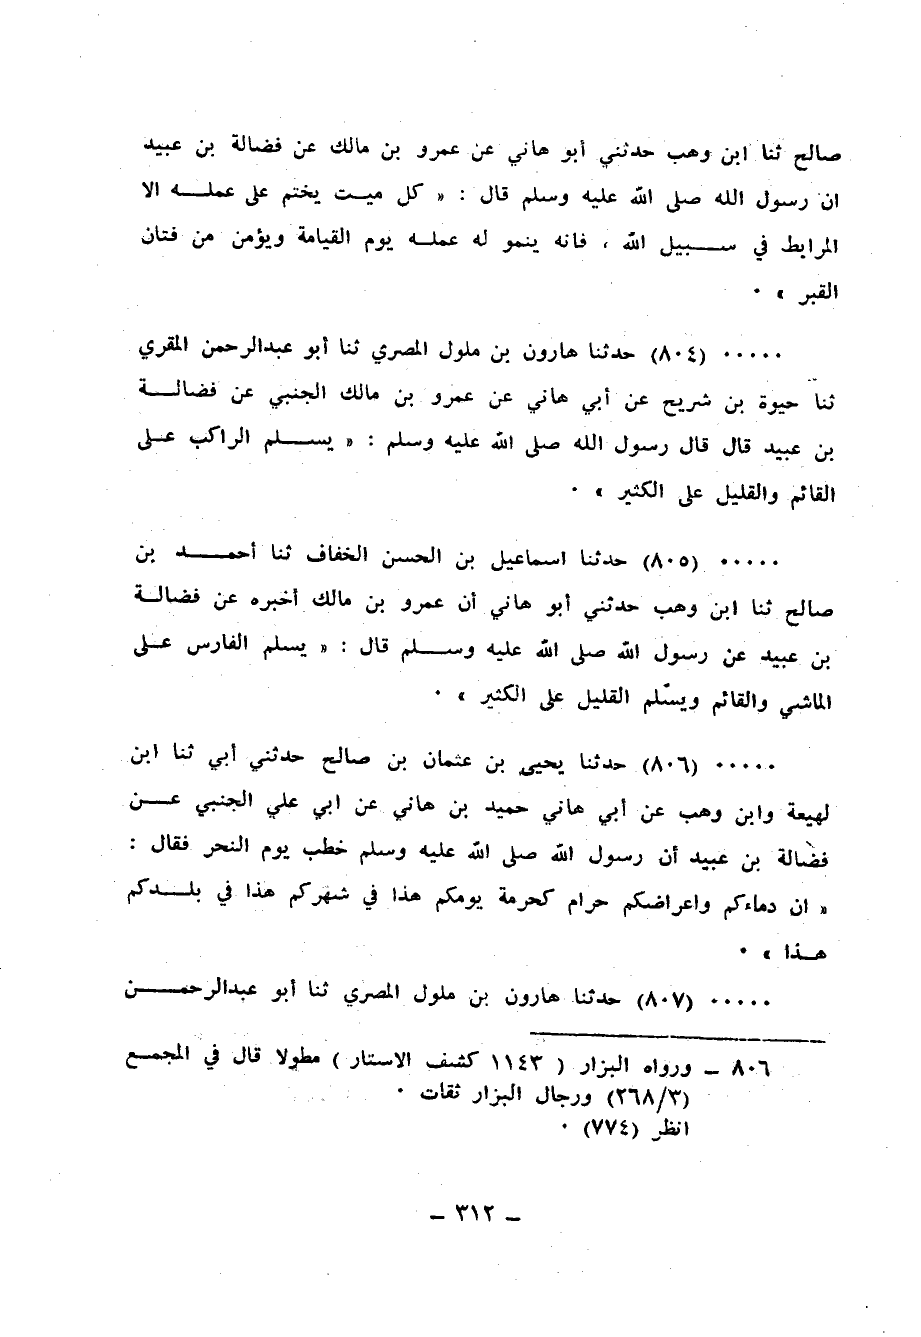 صالح ثنا ابن وهب حدثني أبو هاني عن عمرو بن مالك عن فضالة بن عبيد
ان رسول الله صلى الله عليه وسلم قال : « كل ميت يختم على عمله الا
المرابط في سبيل الله ، فانه ينمو له عمله يوم القيامة ويؤمن من فتان
القبر » ٠
٠٠٠٠٠ (٨٠٤) حدثنا هارون بن ملول المصري ثنا أبو عبدالرحمن المقري
ثنا حيوة بن شريح عن أبي هاني عن عمرو بن مالك الجنبي عن فضالة
بن عبيد قال قال رسول الله صلى الله عليه وسلم : « يسلم الراكب على
القائم والقليل على الكثير » ٠
٠٠٠٠٠ (٨٠٥) حدثنا اسماعيل بن الحسن الخفاف ثنا أحمد بن
صالح ثنا ابن وهب حدثني أبو هاني أن عمرو بن مالك أخبره عن فضالة
بن عبيد عن رسول الله صلى الله عليه وسلم قال : « يسلم الفارس على
الماشي والقائم ويسّلم القليل على الكثير » ٠
٠٠٠٠٠ (٨٠٦) حدثنا يحيى بن عثمان بن صالح حدثني أبي ثنا ابن
لهيعة وابن وهب عن أبي هاني حميد بن هاني عن ابي علي الجنبي عن
فضالة بن عبيد أن رسول الله صلى الله عليه وسلم خطب يوم النحر فقال :
« ان دماءكم واعراضكم حرام كحرمة يومكم هذا في شهركم هذا في بلدكم
هذا » ٠
٠٠٠٠٠ (٨٠٧) حدثنا هارون بن ملول المصري ثنا أبو عبدالرحمن
٨٠٦ – ورواه البزار ( ١١٤٣ كشف الاستار ) مطولا قال في المجمع
(٢٦٨/٣) ورجال البزار ثقات ٠
انظر (٧٧٤) ٠
– ٣١٢ –